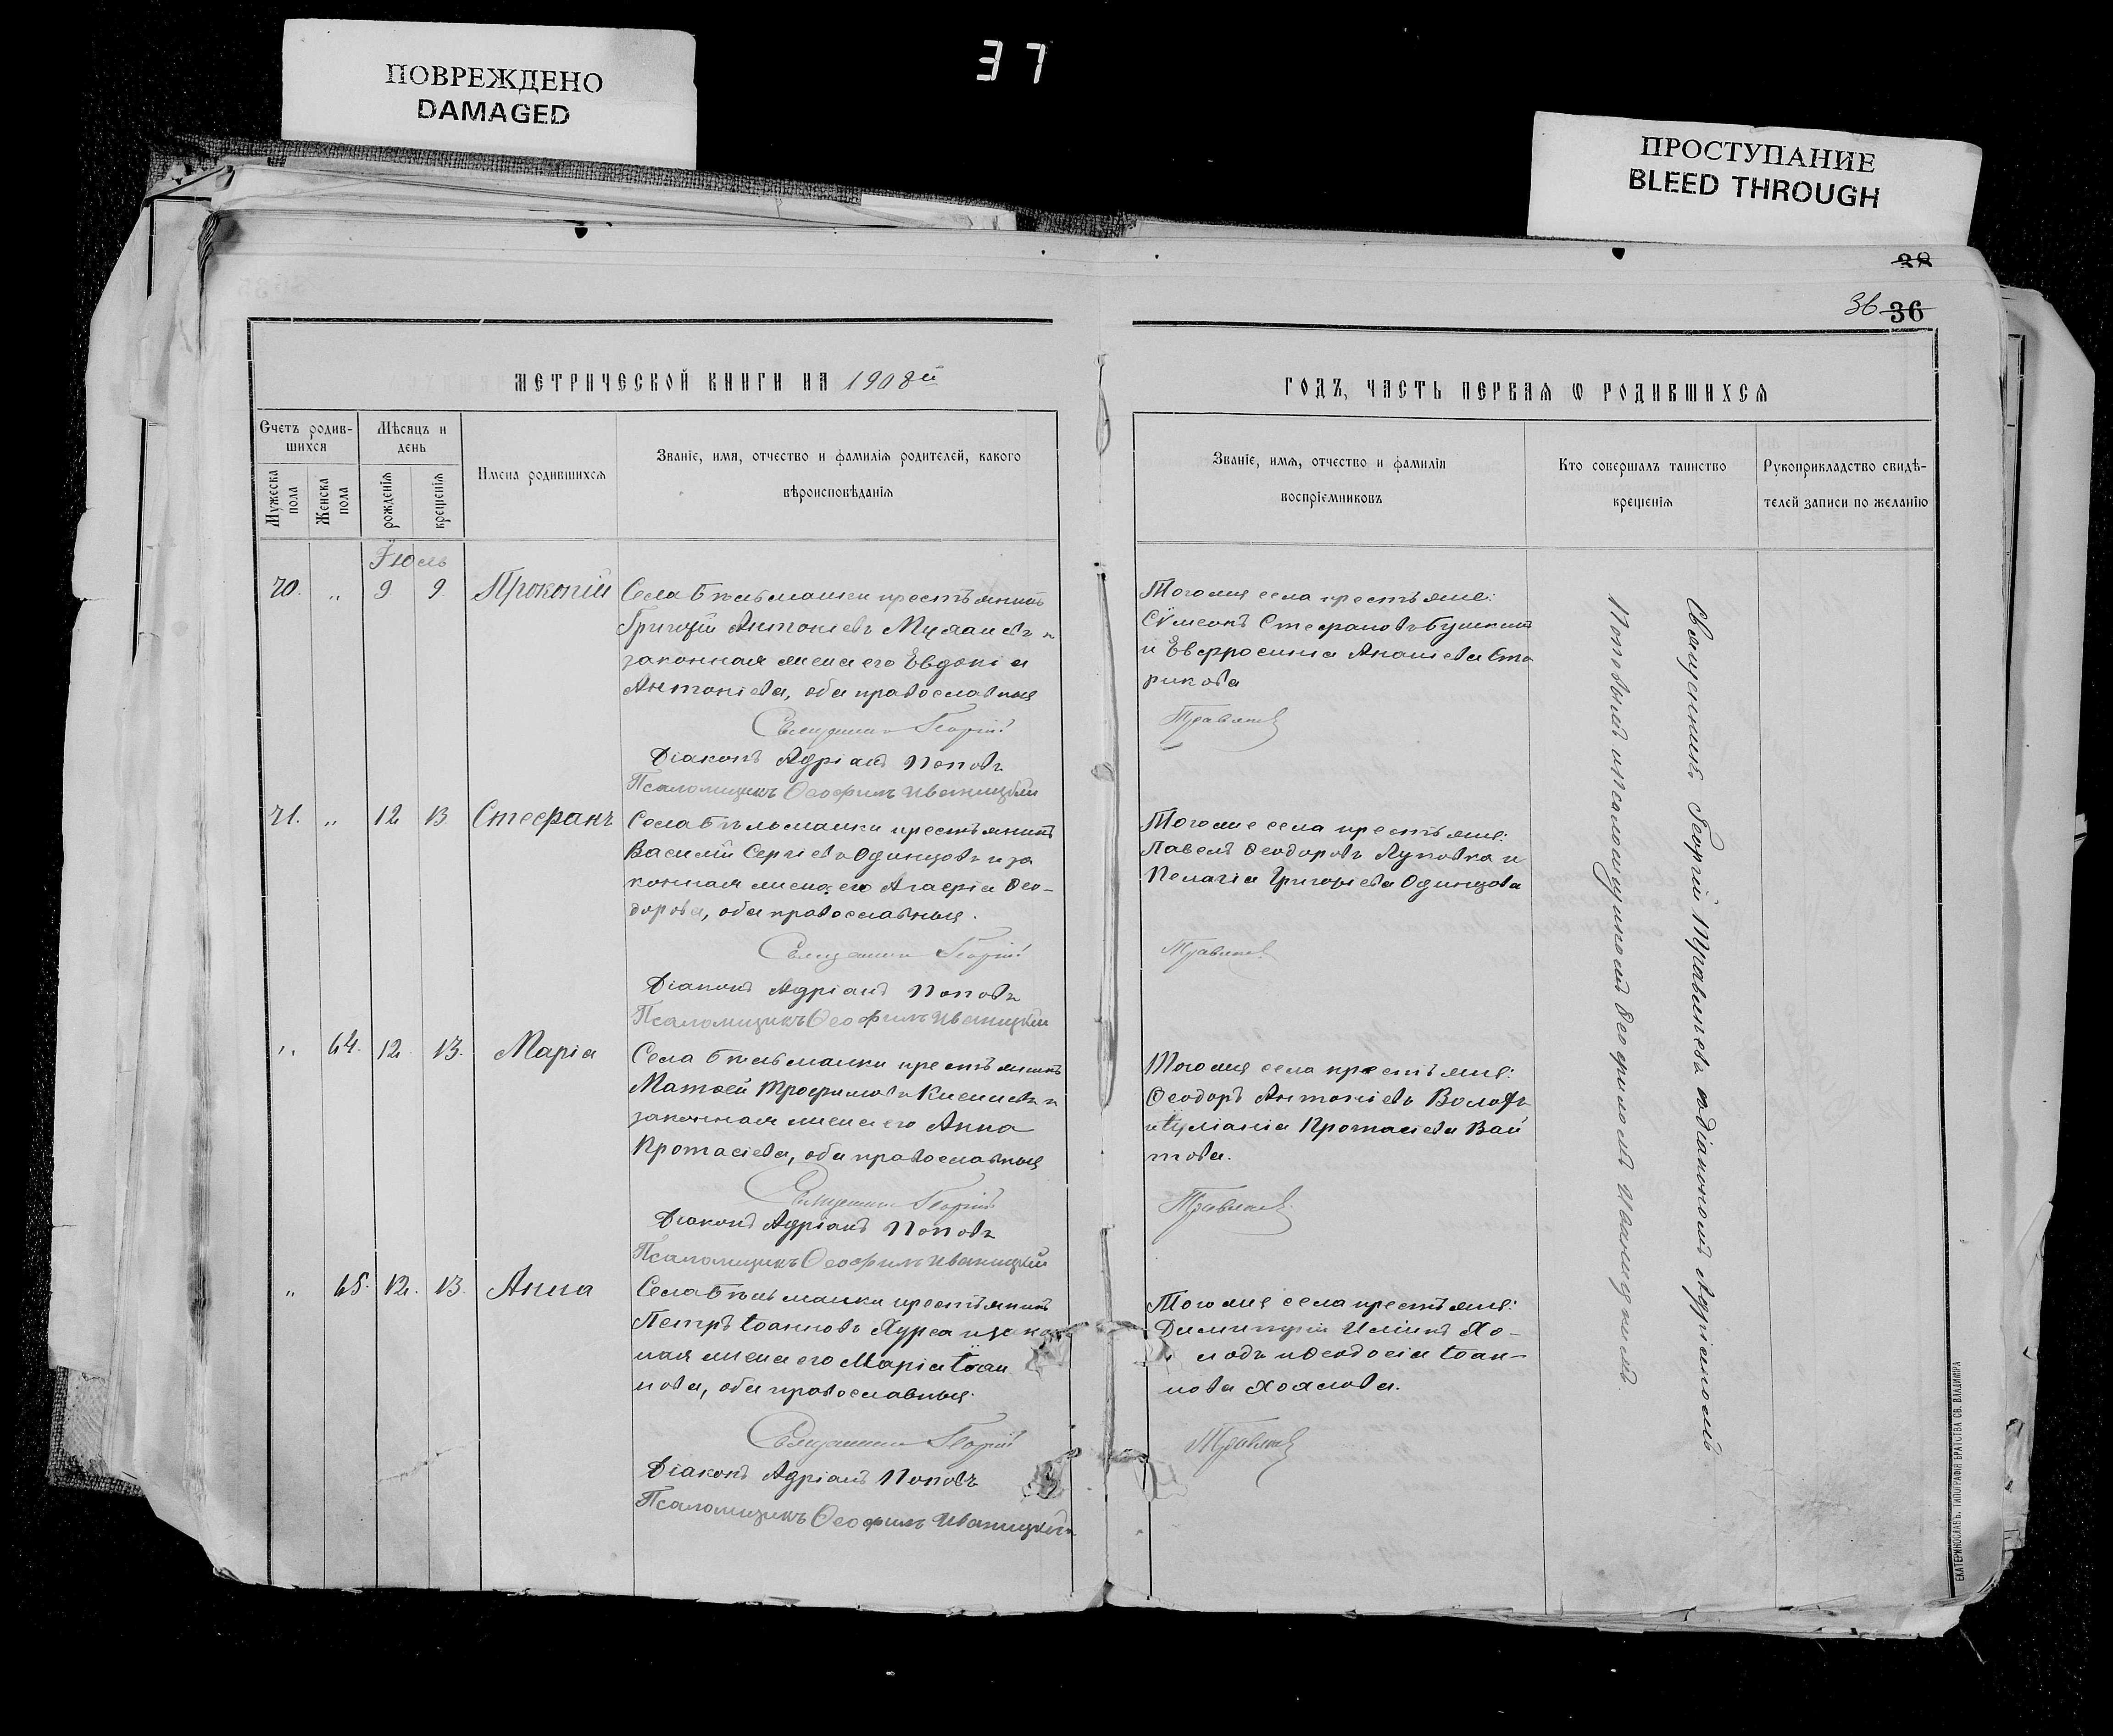 ПОВРЕЖДЕНО
DAMAGED
37
ПРОСТУПАНИЕ
BLEED THROUGH
38
36 36
МЕТРИЧЕСКОЙ КНИГИ НА 1908й
ГОДЪ, ЧАСТЬ ПЕРВАЯ Ѡ РОДИВШИХСЯ
Счетъ родив-
шихся
Мужеска пола
Женска пола
Мѣсяцъ и
день
рожденія
крещенія
Имена родившихся
Званіе, имя, отчество и фамилія родителей, какого
вѣроисповѣданія
Званіе, имя, отчество и фамилія
воспріемниковъ
Кто совершалъ таинство
крещенія
Рукоприкладство свидѣ-
телей записи по желанію
Іюль
70. „ 9 9 Прокопій
Села Бѣльманки крестьянинъ
Григорій Антоніевъ и
законная жена его Евдокія
Антоніева, оба православныя
Священникъ Георгій
Діаконъ Адріанъ Поповъ
Псаломщикъ Ѳеофилъ Иваницкій
Тогоже села крестьяне:
Сѵмеонъ Стефановъ
и Евфросинія Ананіева Ста
рикова
Травлевъ
71. „ 12 13 Стефанъ
Села Бѣльманки крестьянинъ
Василій Сергіевъ Одинцовъ и за
конная жена его Агафія Ѳео-
дорова, оба православныя.
Священникъ Георгій
Діаконъ Адріанъ Поповъ
Псаломщикъ Ѳеофилъ Иваницкій
Тогоже села крестьяне:
Павелъ Ѳеодоровъ и
Пелагія Григоріева Одинцова
Травлевъ
„ 64. 12. 13. Марія
Села Бѣльманки крестьянинъ
Матѳей Трофимовъ и
законная жена его Анна
Протасіева, оба православныя
Священникъ Георгій
Діаконъ Адріанъ Поповъ
Псаломщикъ Ѳеофилъ Иваницкій
Тогоже села крестьяне:
Ѳеодоръ Антоніевъ
и Іуліанія Протасіева Вай
това.
Травлевъ
„ 65. 12. 13. Анна
Села Бѣльманки крестьянинъ
Петръ Іоанновъ и закон
ная жена его Марія Іоан
нова, оба православныя.
Священникъ Георгій
Діаконъ Адріанъ Поповъ
Псаломщикъ Ѳеофилъ Иваницкій
Тогоже села крестьяне:
Димитрій Иліинъ
и Ѳеодосія Іоан-
нова
Травлевъ
Священникъ Георгій Травлевъ съ діакономъ Адріаномъ
Поповымъ и псаломщикомъ Ѳеофиломъ Иваницкимъ
ЕКАТЕРИНОСЛАВЪ. ТИПОГРАФІЯ БРАТСТВА СВ. ВЛАДИМІРА